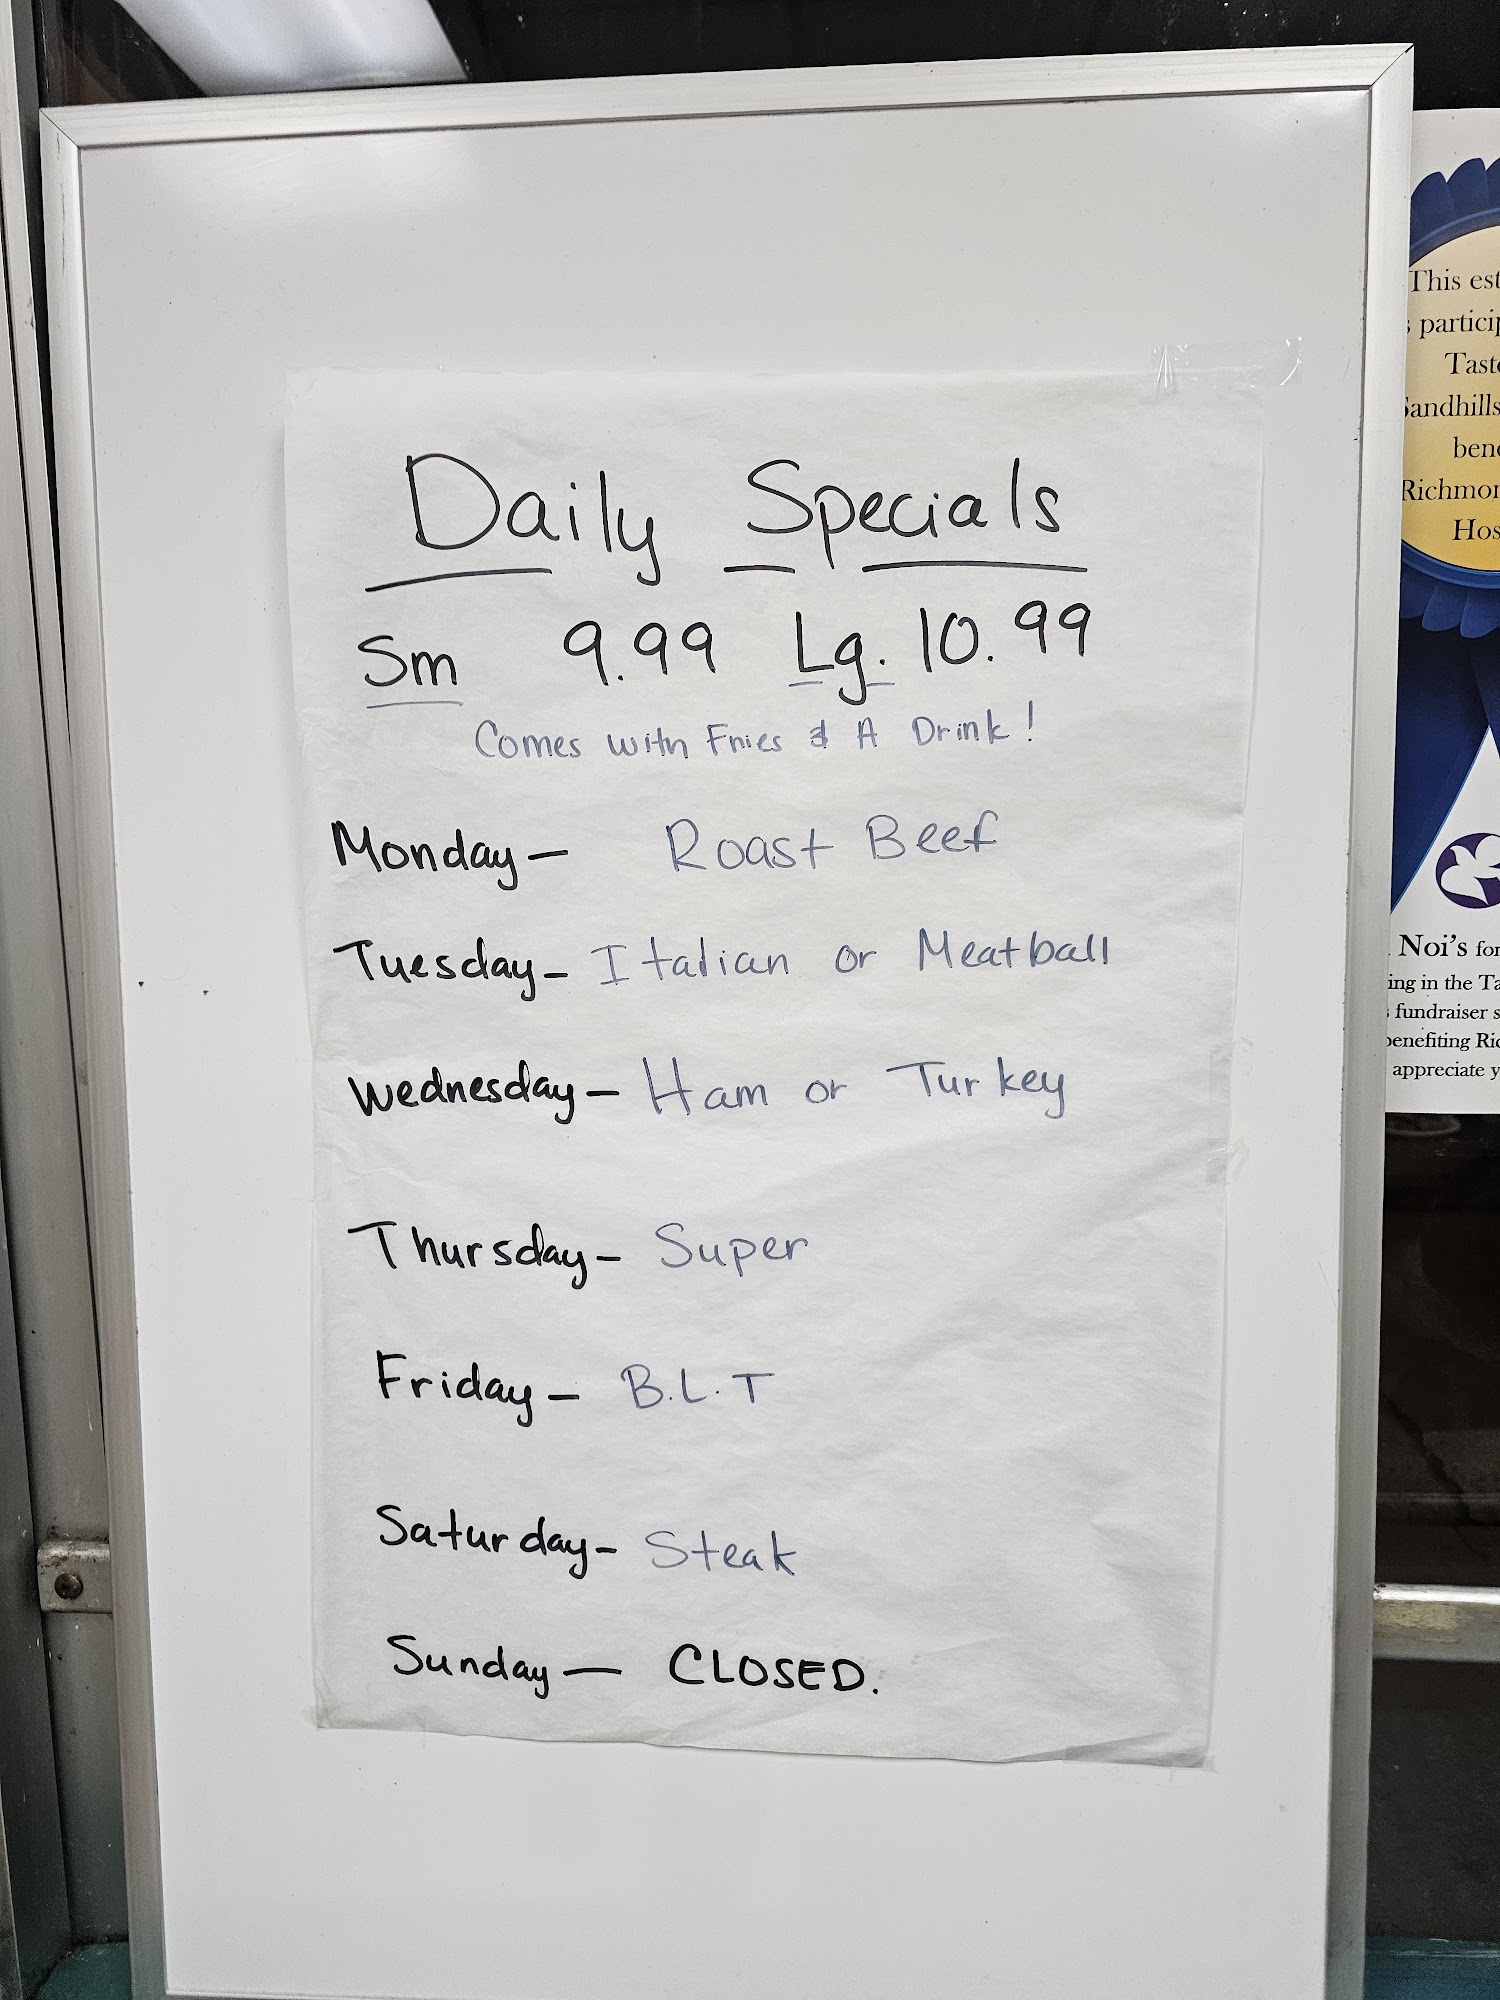 Daily Specials
Sm 9.99 Lg. 10.99
Comes with Fries & A Drink!
Monday - Roast Beef
Tuesday - Italian or Meatball
Wednesday - Ham or Turkey
Thursday - Super
Friday - B.L.T
Saturday - Steak
Sunday - CLOSED.
This est
s particip
Taste
Sandhills
bene
Richmon
Hos
Noi's for
ing in the Ta
s fundraiser s
benefiting Ric
appreciate y